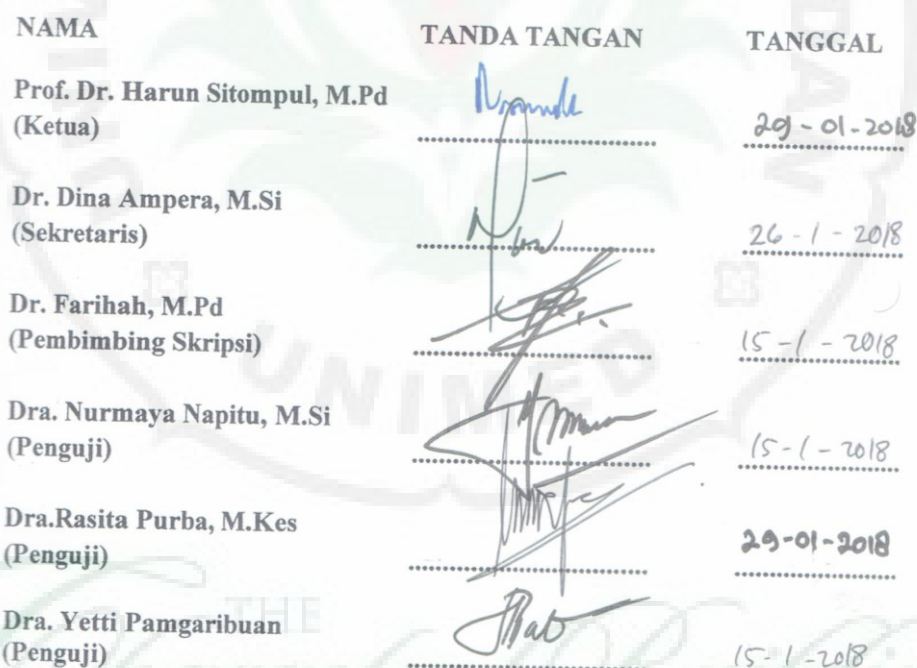 NAMA TANDA TANGAN TANGGAL
Prof. Dr. Harun Sitompul, M.Pd
(Ketua) 29-01-2018
Dr. Dina Ampera, M.Si
(Sekretaris) 26-1-2018
Dr. Farihah, M.Pd
(Pembimbing Skripsi) 15-1-2018
Dra. Nurmaya Napitu, M.Si
(Penguji) 15-1-2018
Dra.Rasita Purba, M.Kes
(Penguji) 29-01-2018
Dra. Yetti Pamgaribuan
(Penguji) 15-1-2018
UNIMED
THE